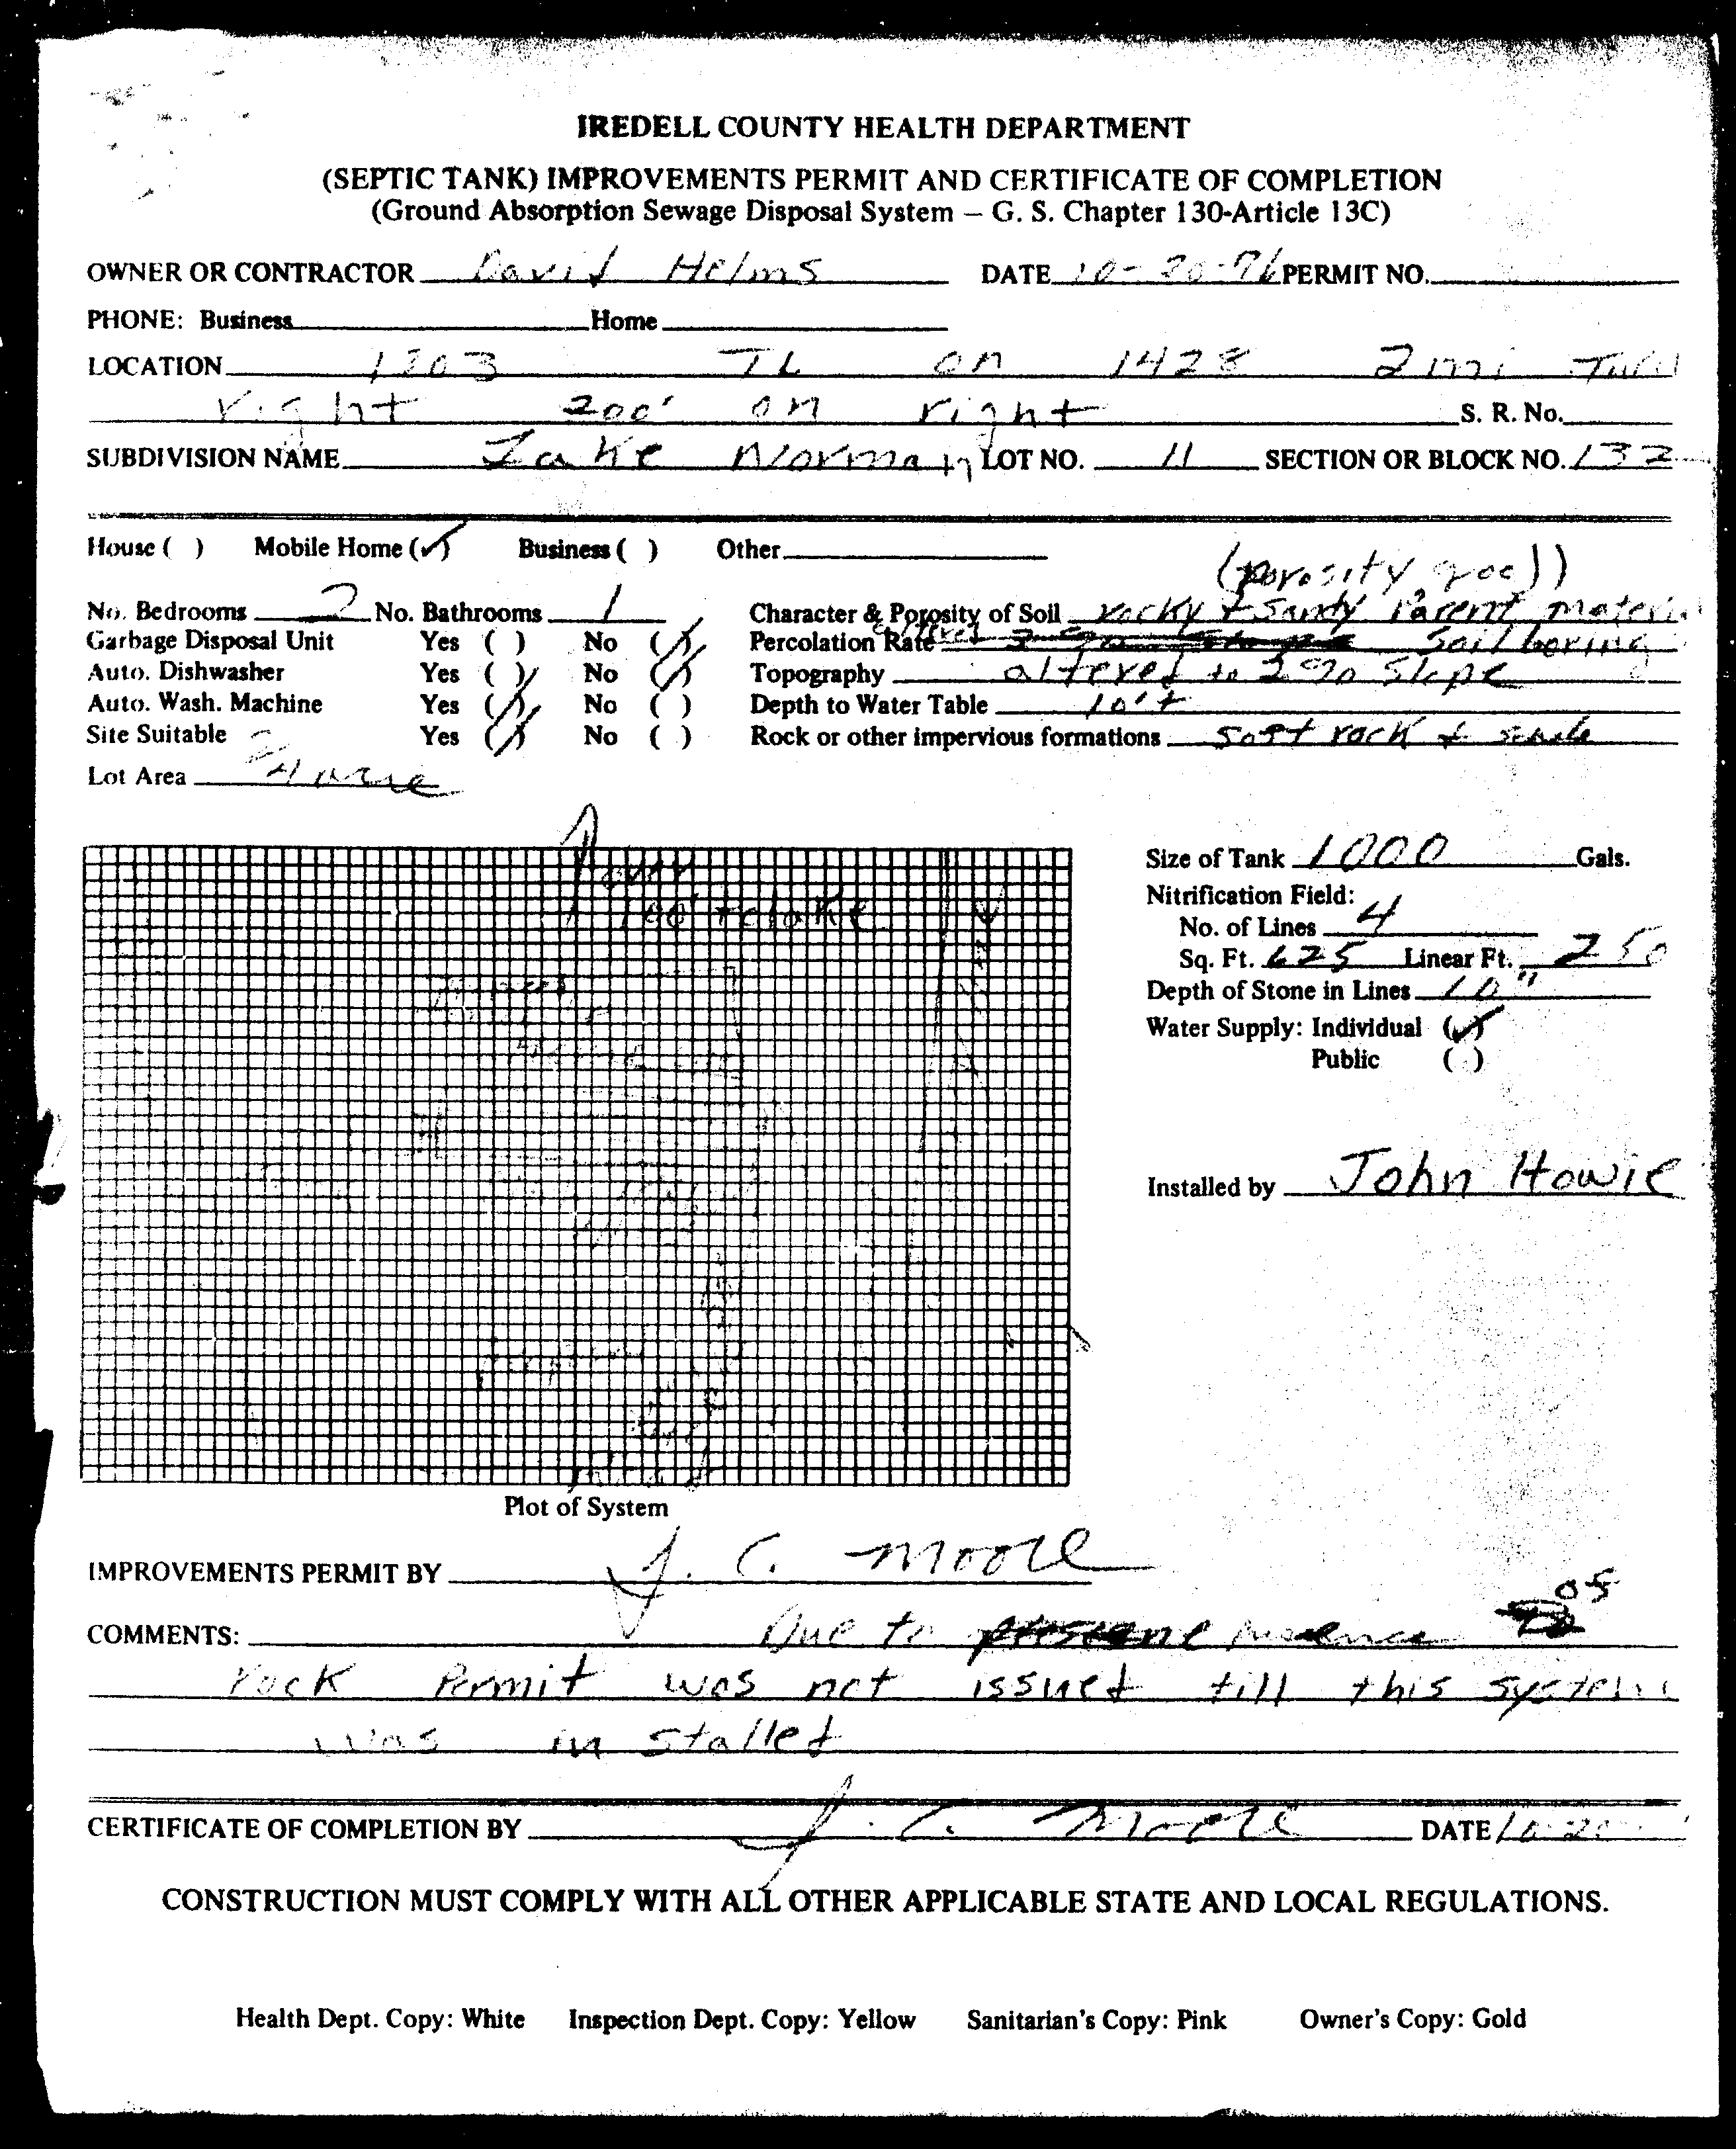 IREDELL COUNTY HEALTH DEPARTMENT
(SEPTIC TANK) IMPROVEMENTS PERMIT AND CERTIFICATE OF COMPLETION
(Ground Absorption Sewage Disposal System – G. S. Chapter 130-Article 13C)
OWNER OR CONTRACTOR David Helms DATE 10-20-76 PERMIT NO.
PHONE: Business Home
LOCATION 1303 TL on 1428 2 mi Turn
right 200' on right S. R. No.
SUBDIVISION NAME Lake Norman LOT NO. 11 SECTION OR BLOCK NO. 132
House ( ) Mobile Home (✓) Business ( ) Other
(porosity good)
No. Bedrooms 2 No. Bathrooms 1 Character & Porosity of Soil rocky + Sandy Parent material
Garbage Disposal Unit Yes ( ) No (✓) Percolation Rate Soil boring
Auto. Dishwasher Yes ( ) No (✓) Topography altered to 2% Slope
Auto. Wash. Machine Yes (✓) No ( ) Depth to Water Table 10'+
Site Suitable Yes (✓) No ( ) Rock or other impervious formations soft rock +
Lot Area
100' + to lake
Size of Tank 1000 Gals.
Nitrification Field:
No. of Lines 4
Sq. Ft. 625 Linear Ft. 250
Depth of Stone in Lines 10"
Water Supply: Individual (✓)
Public ( )
Installed by John Howie
Plot of System
IMPROVEMENTS PERMIT BY J. C. Moore
COMMENTS: Due to presence of
rock Permit was not issued till this system
was installed
CERTIFICATE OF COMPLETION BY J. C. Moore DATE 10-20
CONSTRUCTION MUST COMPLY WITH ALL OTHER APPLICABLE STATE AND LOCAL REGULATIONS.
Health Dept. Copy: White Inspection Dept. Copy: Yellow Sanitarian's Copy: Pink Owner's Copy: Gold